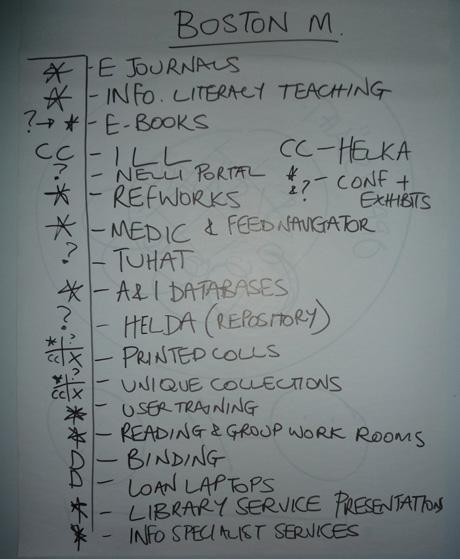 BOSTON M.
* - E JOURNALS
* - INFO. LITERACY TEACHING
? → * - E-BOOKS
CC - ILL CC - HELKA
? - NELLI PORTAL * & ? - CONF + EXHIBITS
* - REFWORKS
* - MEDIC & FEEDNAVIGATOR
? - TUHAT
* - A&I DATABASES
? - HELDA (REPOSITORY)
* ? CC X - PRINTED COLLS
* ? CC X - UNIQUE COLLECTIONS
* - USER TRAINING
* - READING & GROUP WORK ROOMS
D - BINDING
D - LOAN LAPTOPS
* - LIBRARY SERVICE PRESENTATION
* - INFO SPECIALIST SERVICES